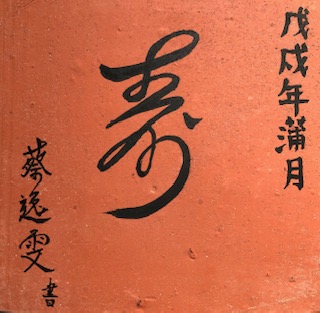 戊戌年蒲月
寿
蔡逸雯書